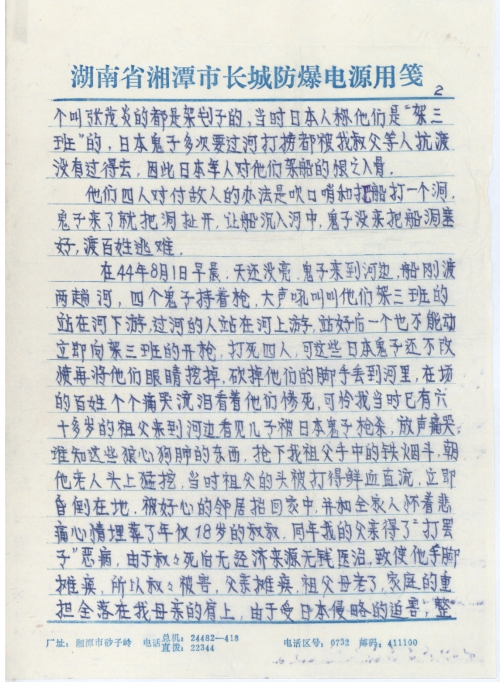 湖南省湘潭市长城防爆电源用笺
2
个叫张茂炎的都是架划子的,当时日本人称他们是“架三
班”的,日本鬼子多次要过河打捞都被我叔父等人抗渡
没有过得去,因此日本军人对他们架船的恨之入骨.
他们四人对付故人的办法是吹口哨和把船打一个洞,
鬼子来了就把洞扯开,让船沉入河中,鬼子没来把船洞塞
好,渡百姓逃难.
在44年8月1日早晨,天还没亮,鬼子来到河边,船刚渡
两趟河,四个鬼子持着枪,大声吼叫叫他们架三班的
站在河下游,过河的人站在河上游,站好后一个也不能动
立即向架三班的开枪,打死四人,可这些日本鬼子还不改
恨再将他们眼睛挖掉,砍掉他们的脚手丢到河里,在场
的百姓个个痛哭流泪看着他们惨死,可怜我当时已有六
十多岁的祖父来到河边看见儿子被日本鬼子枪杀,放声痛哭,
谁知这些狼心狗肺的东西,抢下我祖父手中的铁烟斗,朝
他老人头上猛挖,当时祖父的头被打得鲜血直流,立即
昏倒在地,被好心的邻居抬回家中,并和全家人怀着悲
痛心情埋葬了年仅18岁的叔叔,同年我的父亲得了“打罢
子”恶病,由于叔々死后无经济来源无钱医治,致使他手脚
摊痪,所以叔々被害,父亲摊痪,祖父母老了,家庭的重
担全落在我母亲的肩上,由于受日本侵略的迫害,整
厂址:湘潭市砂子岭 电话 总机:24482—418 直拨:22344 电话区号:0732 邮码:411100